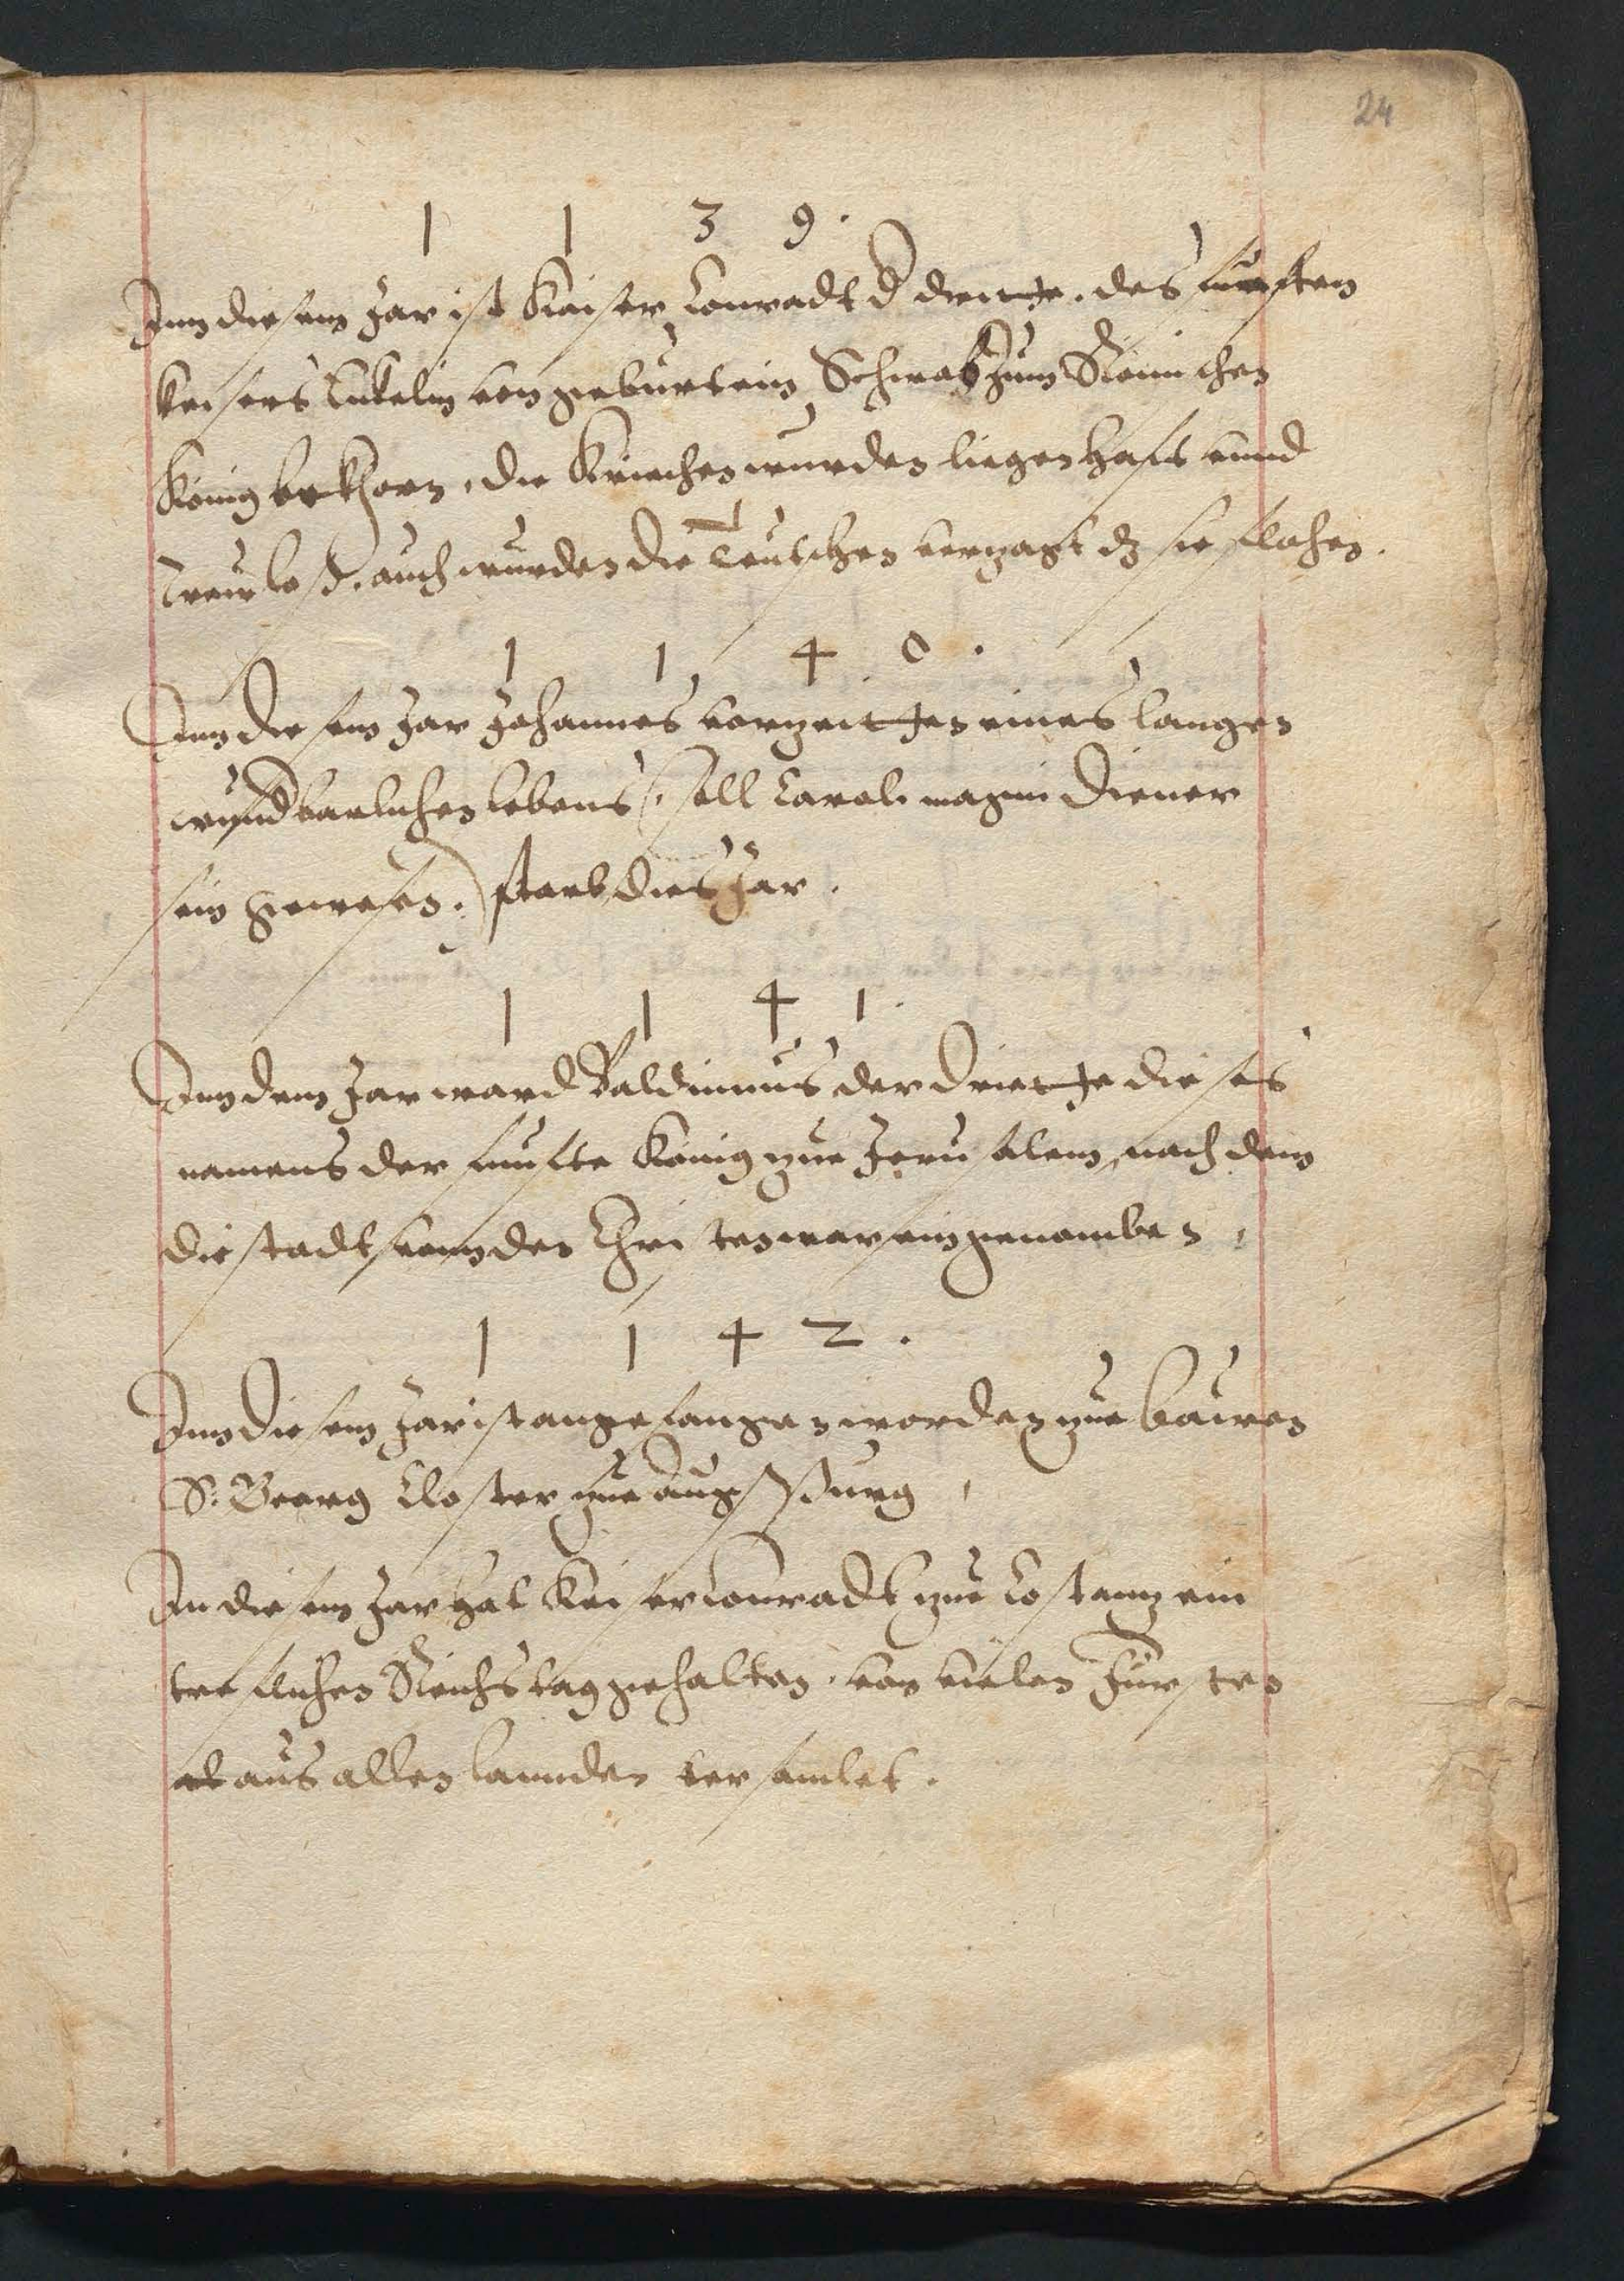 24
1 1 3 9.
Inn diesem Jar ist Kaiser Conradt d dritte. des funfften
keisers Enikelin von geburt ein Schwab zum Römischen
König erkhorn, die Kriechen wurden liegenhafft vnnd
trewloß. auch wurden die Teutschen verzagt dz sie flohen.
1 1 4 0.
Inn diesem Jar Johannes vorzeitten eines langen
wundbarlichen lebens (soll Caroli magni diener
sein gewesen.) starb dies Jar.
1 1 4 1.
Inn dem Jar ward Baldinuus der Dritte dieses
namens der funfte König zue Jerusalem, nach dem
die stadt vonn den Christen war eingenomben,
1 1 4 2.
Inn diesem Jar ist angefangen worden zue bauwen
S: Georg Closter zue Augspurg,
In diesem Jar hat Keiser Conradt zue Costanz ein
treflichen Reichstag gehalten. von vielen Fürsten
aus allen lannden versamlet.